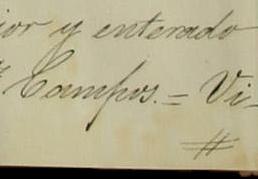 ior y enterado
Campos. = Vi-